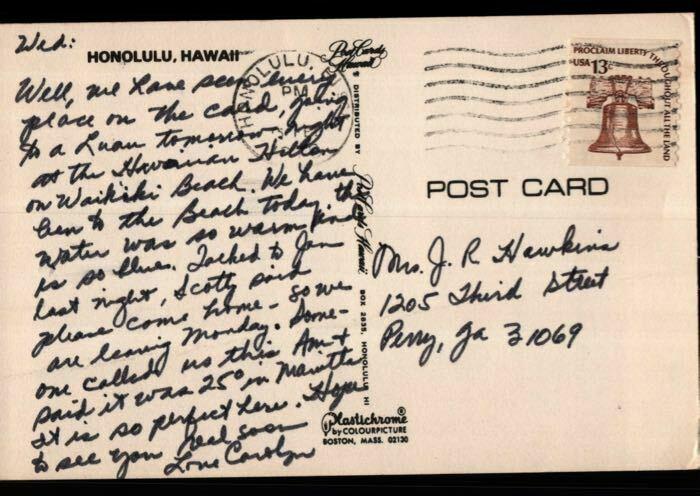 Wed:
HONOLULU, HAWAII
Well, we have seen every
place on the card, going
to a Luau tomorrow night
at the Hawaiian Hilton
on Waikiki Beach. We have
been to the Beach today, the
water was so warm and
is so blue. Talked to Jan
last night, Scotty said
please come home - so we
are leaving Monday. Some-
one called us this Am +
said it was 25° in Marietta
It is so perfect here. Hope
to see you real soon
Love Carolyn
Post Cards
Hawaii
DISTRIBUTED BY
Post Cards Hawaii
BOX 2835, HONOLULU, HI
Plastichrome®
by COLOURPICTURE
BOSTON, MASS. 02130
HONOLULU,
PM
PROCLAIM LIBERTY THROUGHOUT ALL THE LAND
USA 13c
POST CARD
Mrs. J. R. Hawkins
1205 Third Street
Perry, Ga 31069